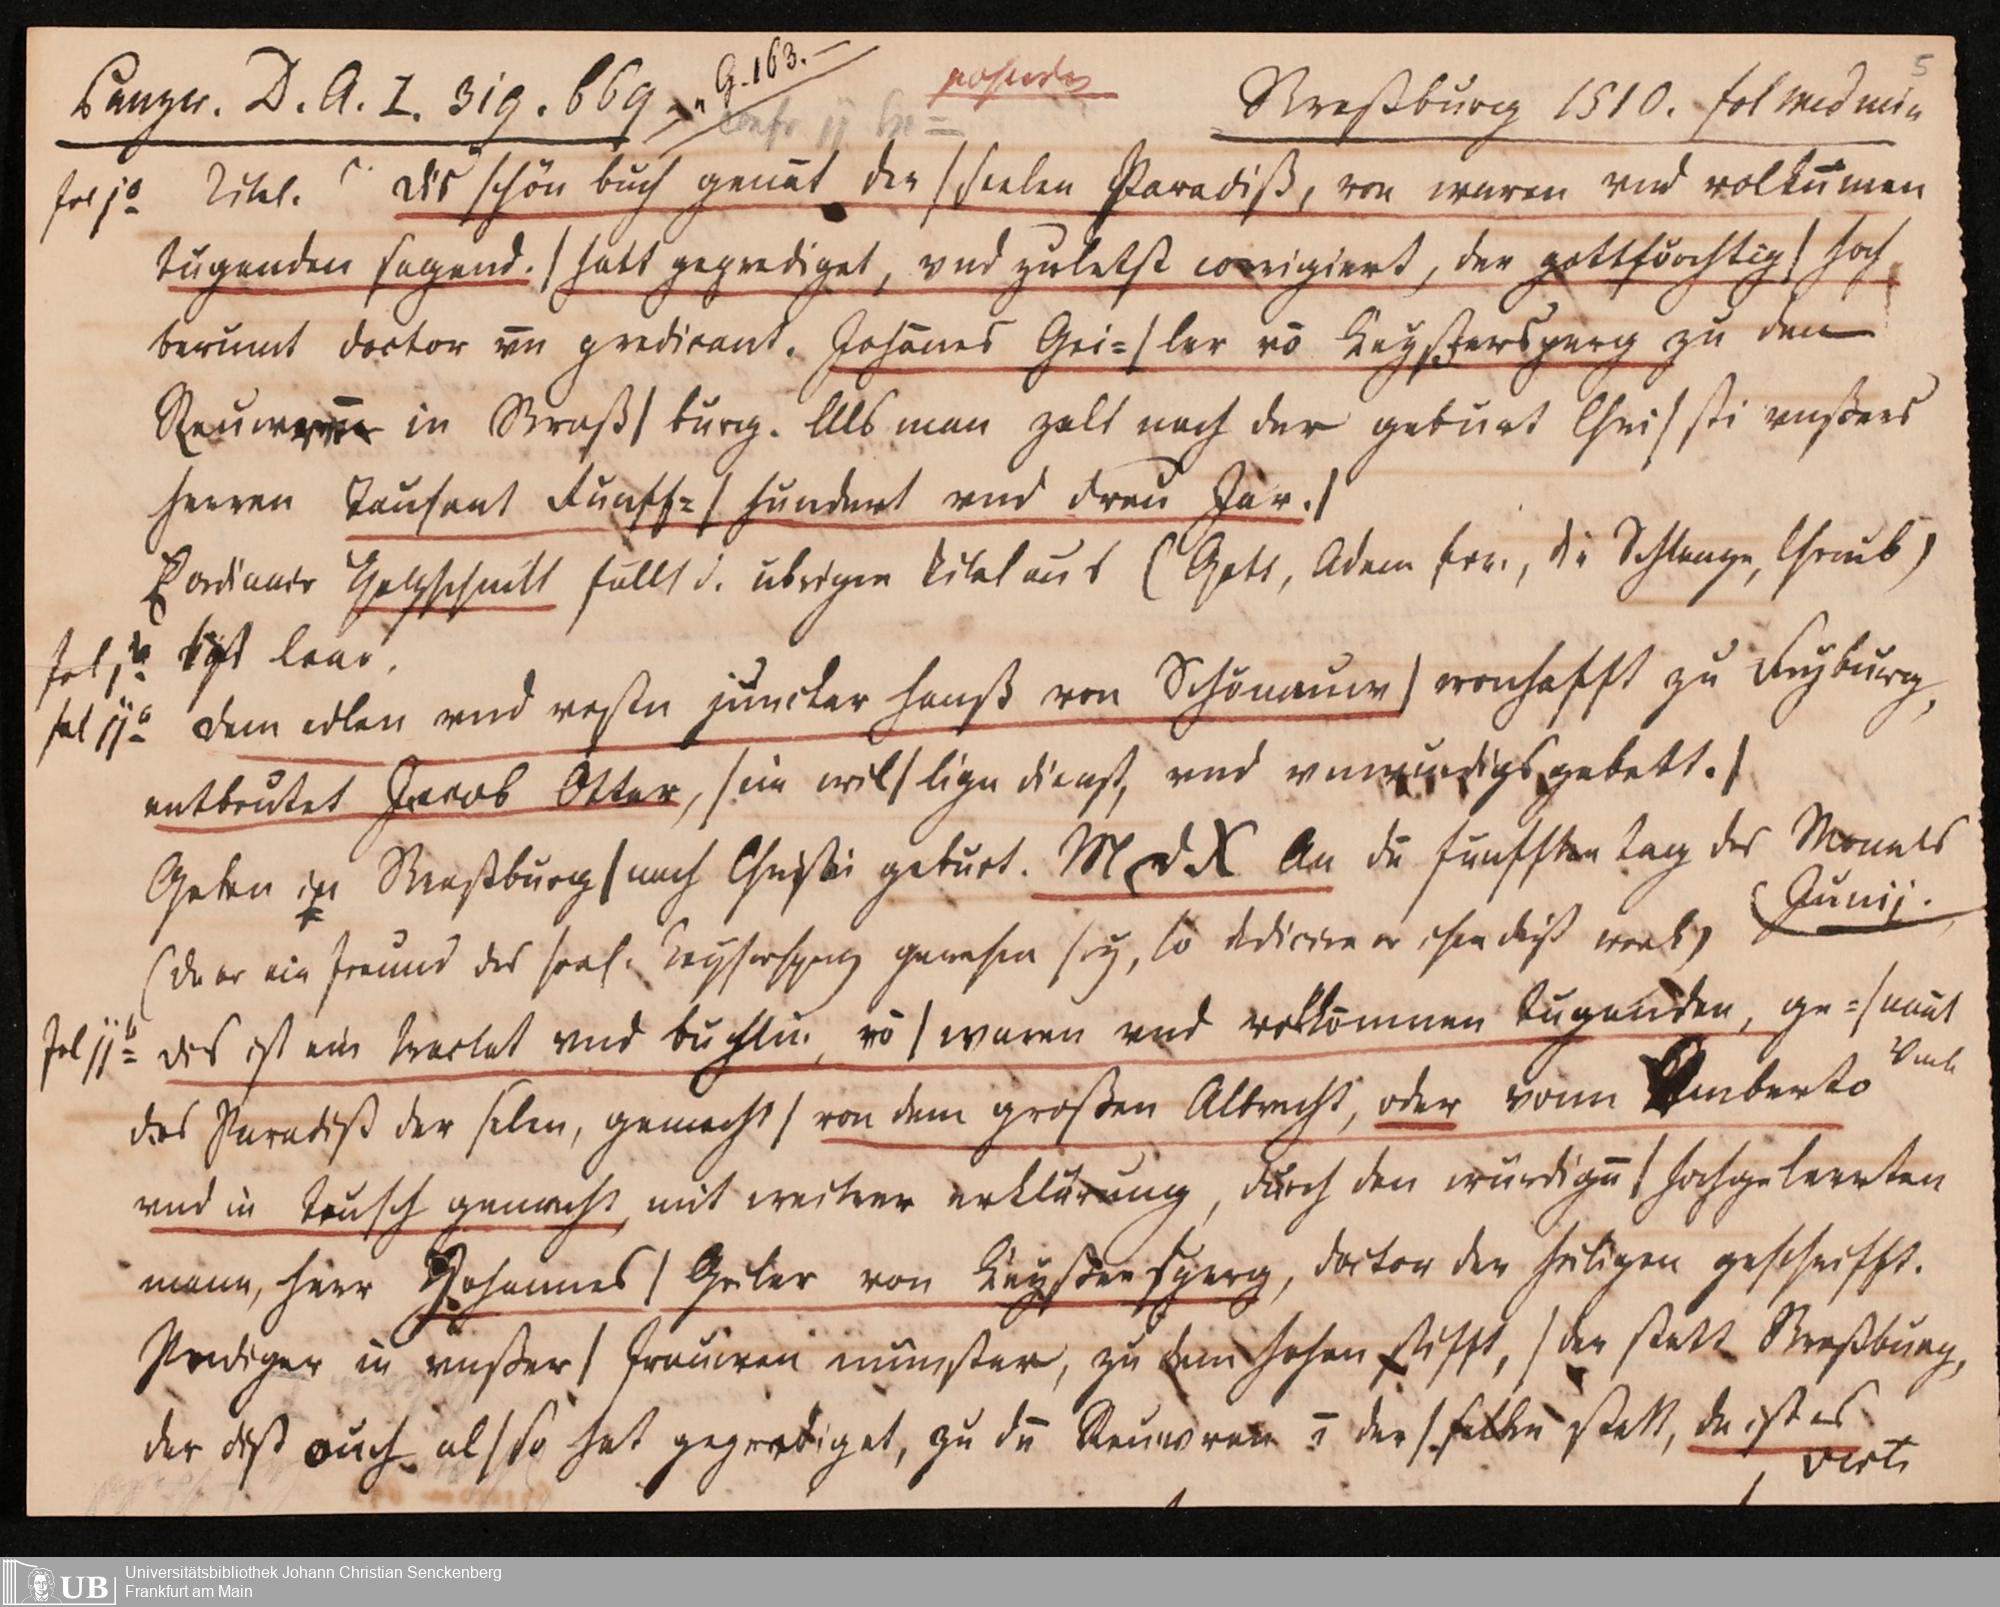 Panzer. D. A. I. 319. 669 G. 163.— Straßburg 1510. fol med min 5
fol j a Titel. Dis schön buch genāt der / seelen Paradiß, von waren vnd volkumen
tugenden sagend. / hatt geprediget, vnd zuletst corrigiert, der gottfürchtig / hoch
berümt doctor vn̄ predicant. Johānes Gei= / ler vō Keysersperg zu den
Reuweren in Straß / burg. Als man zelt nach der geburt Chri / sti vnßers
herren Tausent Funff= / hundert vnd dreu Jar. /
Holzschnitt füllt d. übrigen Titel aus (Gott, Adam, die Schlange,
fol j b ist leer.
fol ij a dem edlen vnd vesten juncker hanß von Schönauw / wonhafft zu Fryburg,
entbeutet Jacob Otter, sein wil / lige dienst, vnd vnwirdigs gebett. /
Geben in Straßburg / nach Christi geburt. M d X An dē fünfften tag des Monats
Junij.
(da er ein Freund des sel. Keysersperg gewesen sey, so dedicire er ihm diß werk)
fol ij b das ist ein tractat vnd büchlin, vō / waren vnd volkomnen tugenden, ge= / nant
das Paradiß der selen, gemacht / von dem großen Albrecht, oder vonn Vmberto
vnd in teusch gemacht, mit weitrer erklärung, durch den würdigē / hochgelerten
mann, herr Johannes / Geiler von Keysersperg, doctor der heiligen geschrifft.
Prediger in vnßer / frauwen münster, zu dem hohen stifft, / der statt Straßburg,
der diß ouch al / so hat geprediget, zu dē Reuweren ī der / selben statt, da ist es
vert.
UB Universitätsbibliothek Johann Christian Senckenberg
Frankfurt am Main